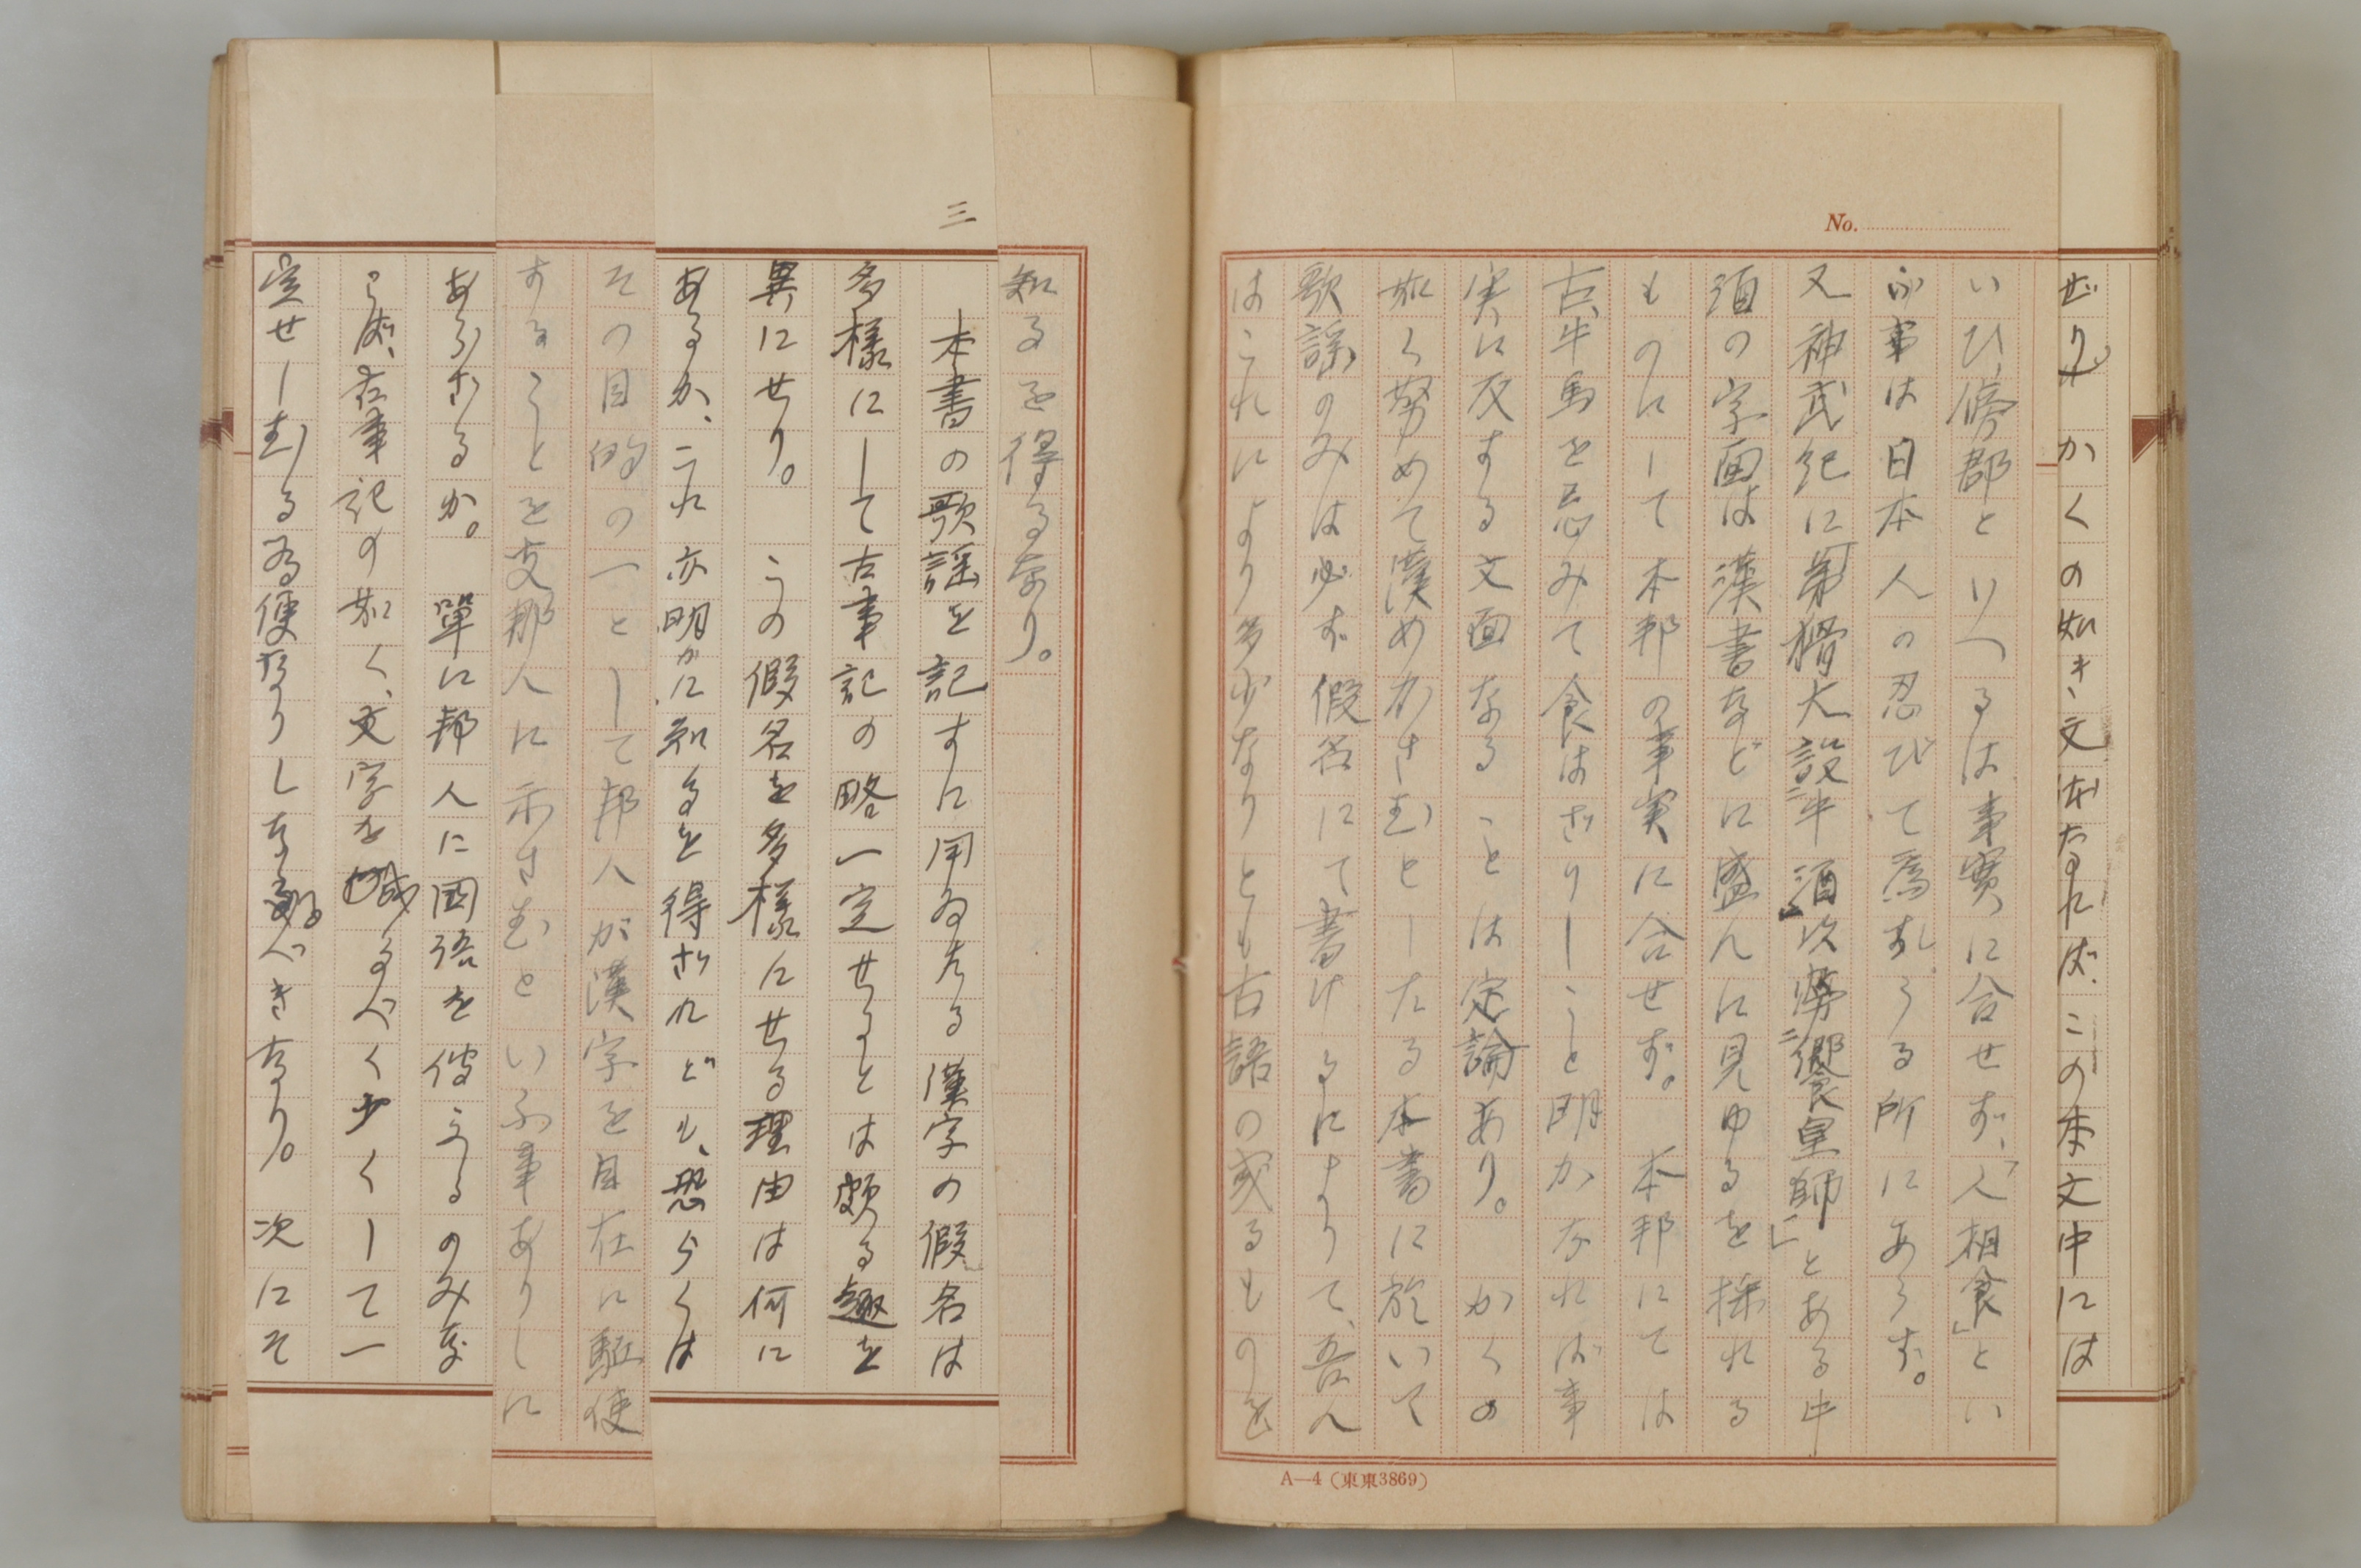 せり。かくの如き文体なれば、この本文中には
いひ、傍郡といへるは事實に合せず、「人相食」とい
ふ事は日本人の忍びて為し得る所にあらず。
又神武紀に「弟猾大設牛酒以勞饗皇師」とある牛
酒の字面は漢書などに盛んに見ゆるを採れる
ものにして本邦の事実に合せず。本邦にては
古牛馬を忌みて食はざりしこと明かなれば事
実に反する文面なることは定論あり。かくの
如く努めて漢めかさむとしたる本書に於いて
歌謡のみは必ず假名にて書けるによりて、吾人
はこれにより多少なりとも古語の或るものを
No.
A—4(東東3869)
知るを得るなり。
三
本書の歌謡を記すに用ゐたる漢字の假名は
多様にして古事記の略一定せるとは頗る趣を
異にせり。この假名を多様にせる理由は何に
あるか、これ亦明かに知るを得ざれども、恐らくは
その目的の一として邦人が漢字を自在に駆使
することを支那人に示さむといふ事ありしに
あらざるか。單に邦人に国語を傳ふるのみな
らば、古事記の如く、文字を減るべく少くして一
定せしむる為便なりしなるべきなり。次にそ